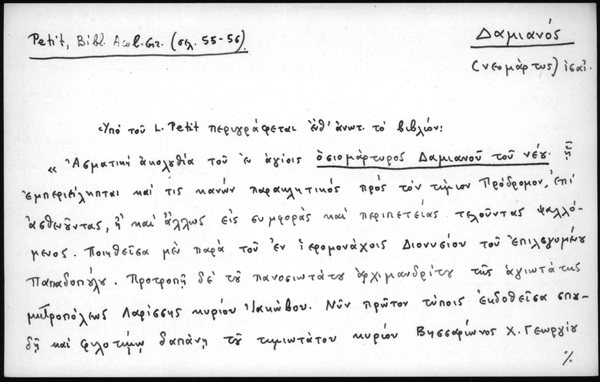 Petit, Bibl. Acol. Gr. (σελ. 55-56)
Δαμιανός
(νεομάρτυς) ὁσι.
Ὑπὸ τοῦ L. Petit περιγράφεται ἐνθ' ἀνωτ. τὸ βιβλίον:
« Ἀσματικὴ ἀκολυθία τοῦ ἐν ἁγίοις ὁσιομάρτυρος Δαμιανοῦ τοῦ νέου. ᾗ
ἐμπεριείληπται καὶ τις κανὼν παρακλητικὸς πρὸς τὸν τίμιον Πρόδρομον, ἐπὶ
ἀσθενοῦντας, ἢ καὶ ἄλλως εἰς συμφορὰς καὶ περιπετείας τελοῦντας ψαλλό-
μενος. Ποιηθεῖσα μὲν παρὰ τοῦ ἐν ἱερομονάχοις Διονυσίου τοῦ ἐπιλεγομένου
Παπαδοπούλου. Προτροπῇ δὲ τοῦ πανοσιωτάτου ἀρχιμανδρίτου τῆς ἁγιωτάτης
μητροπόλεως Λαρίσσης κυρίου Ἰακώβου. Νῦν πρῶτον τύποις ἐκδοθεῖσα σπου-
δῇ καὶ φιλοτίμῳ δαπάνῃ τοῦ τιμιωτάτου κυρίου Βησσαρίωνος Χ. Γεωργίου
%